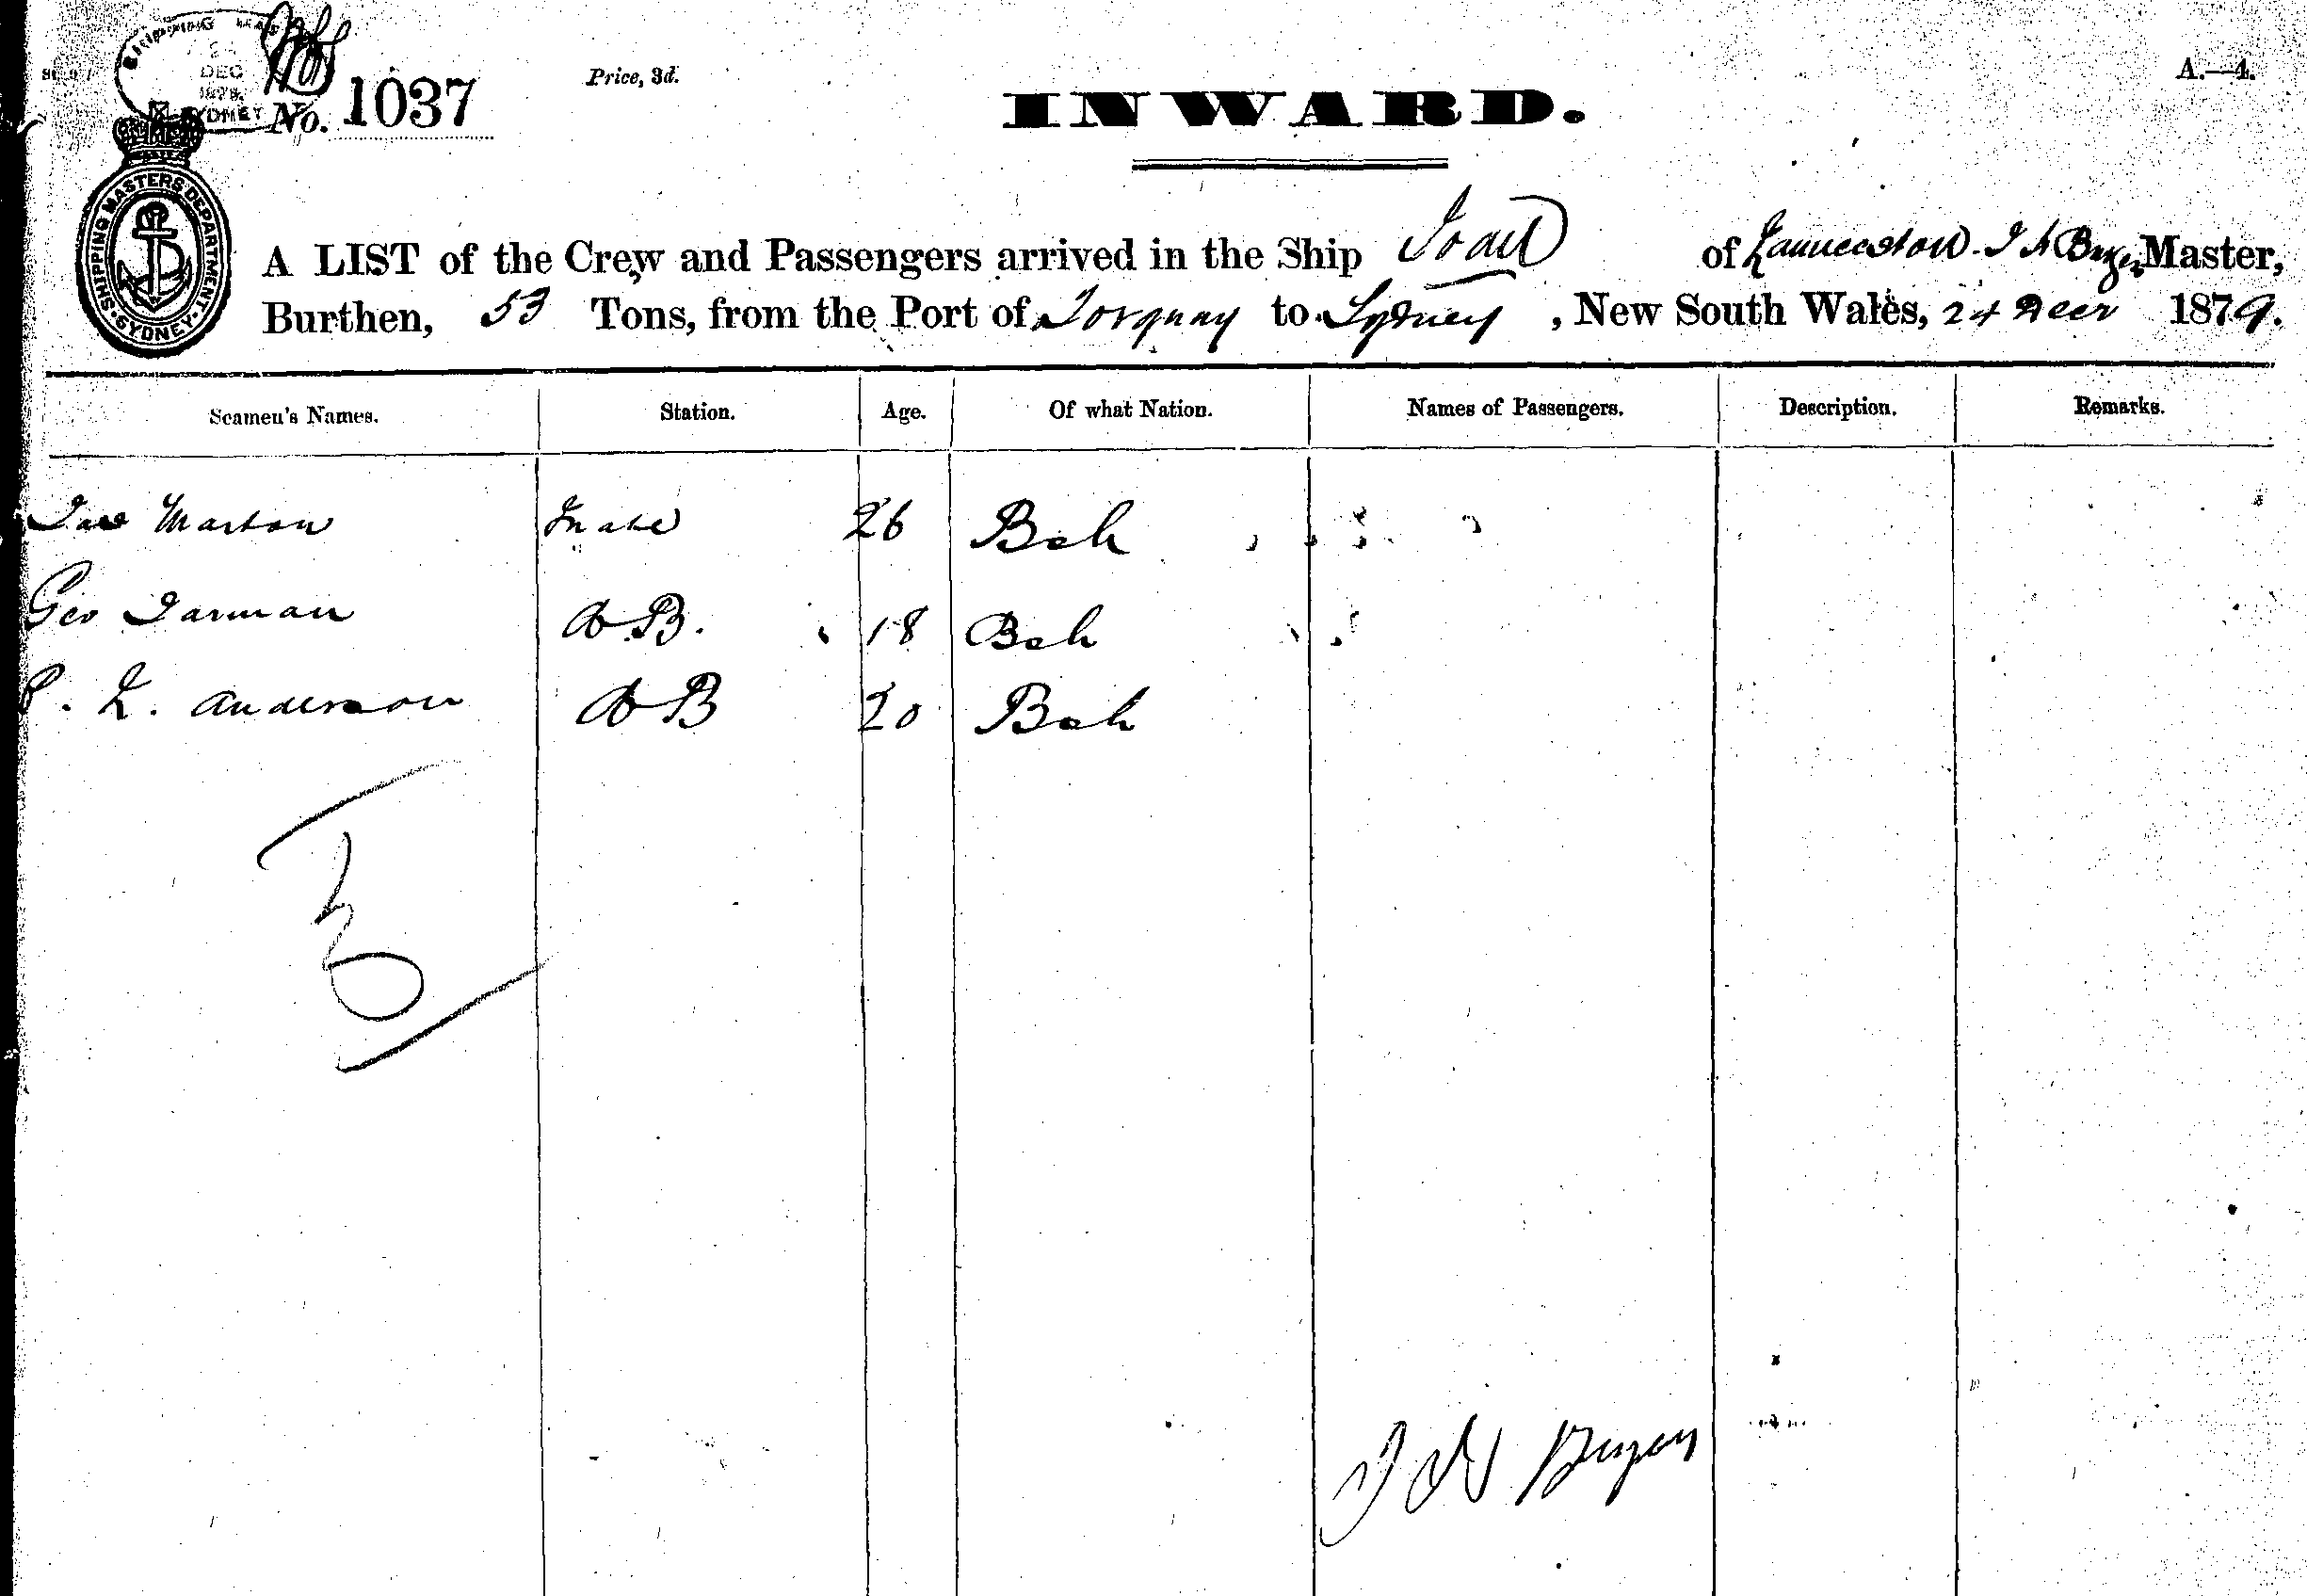 SHIPPING MAS
DEC
1879
SYDNEY
No. 1037
Price, 3d.
A.—4.
INWARD.
SHIPPING MASTERS DEPARTMENT · SYDNEY ·
A LIST of the Crew and Passengers arrived in the Ship Joan of Launceston. J A Master,
Burthen, 53 Tons, from the Port of Torquay to Sydney, New South Wales, 24 Decr 1879.
Seamen's Names. Station. Age. Of what Nation. Names of Passengers. Description. Remarks.
Jas Marton Mate 26 Bch
Geo Jarman AB. 18 Bch
P. L. Anderson AB 20 Bch